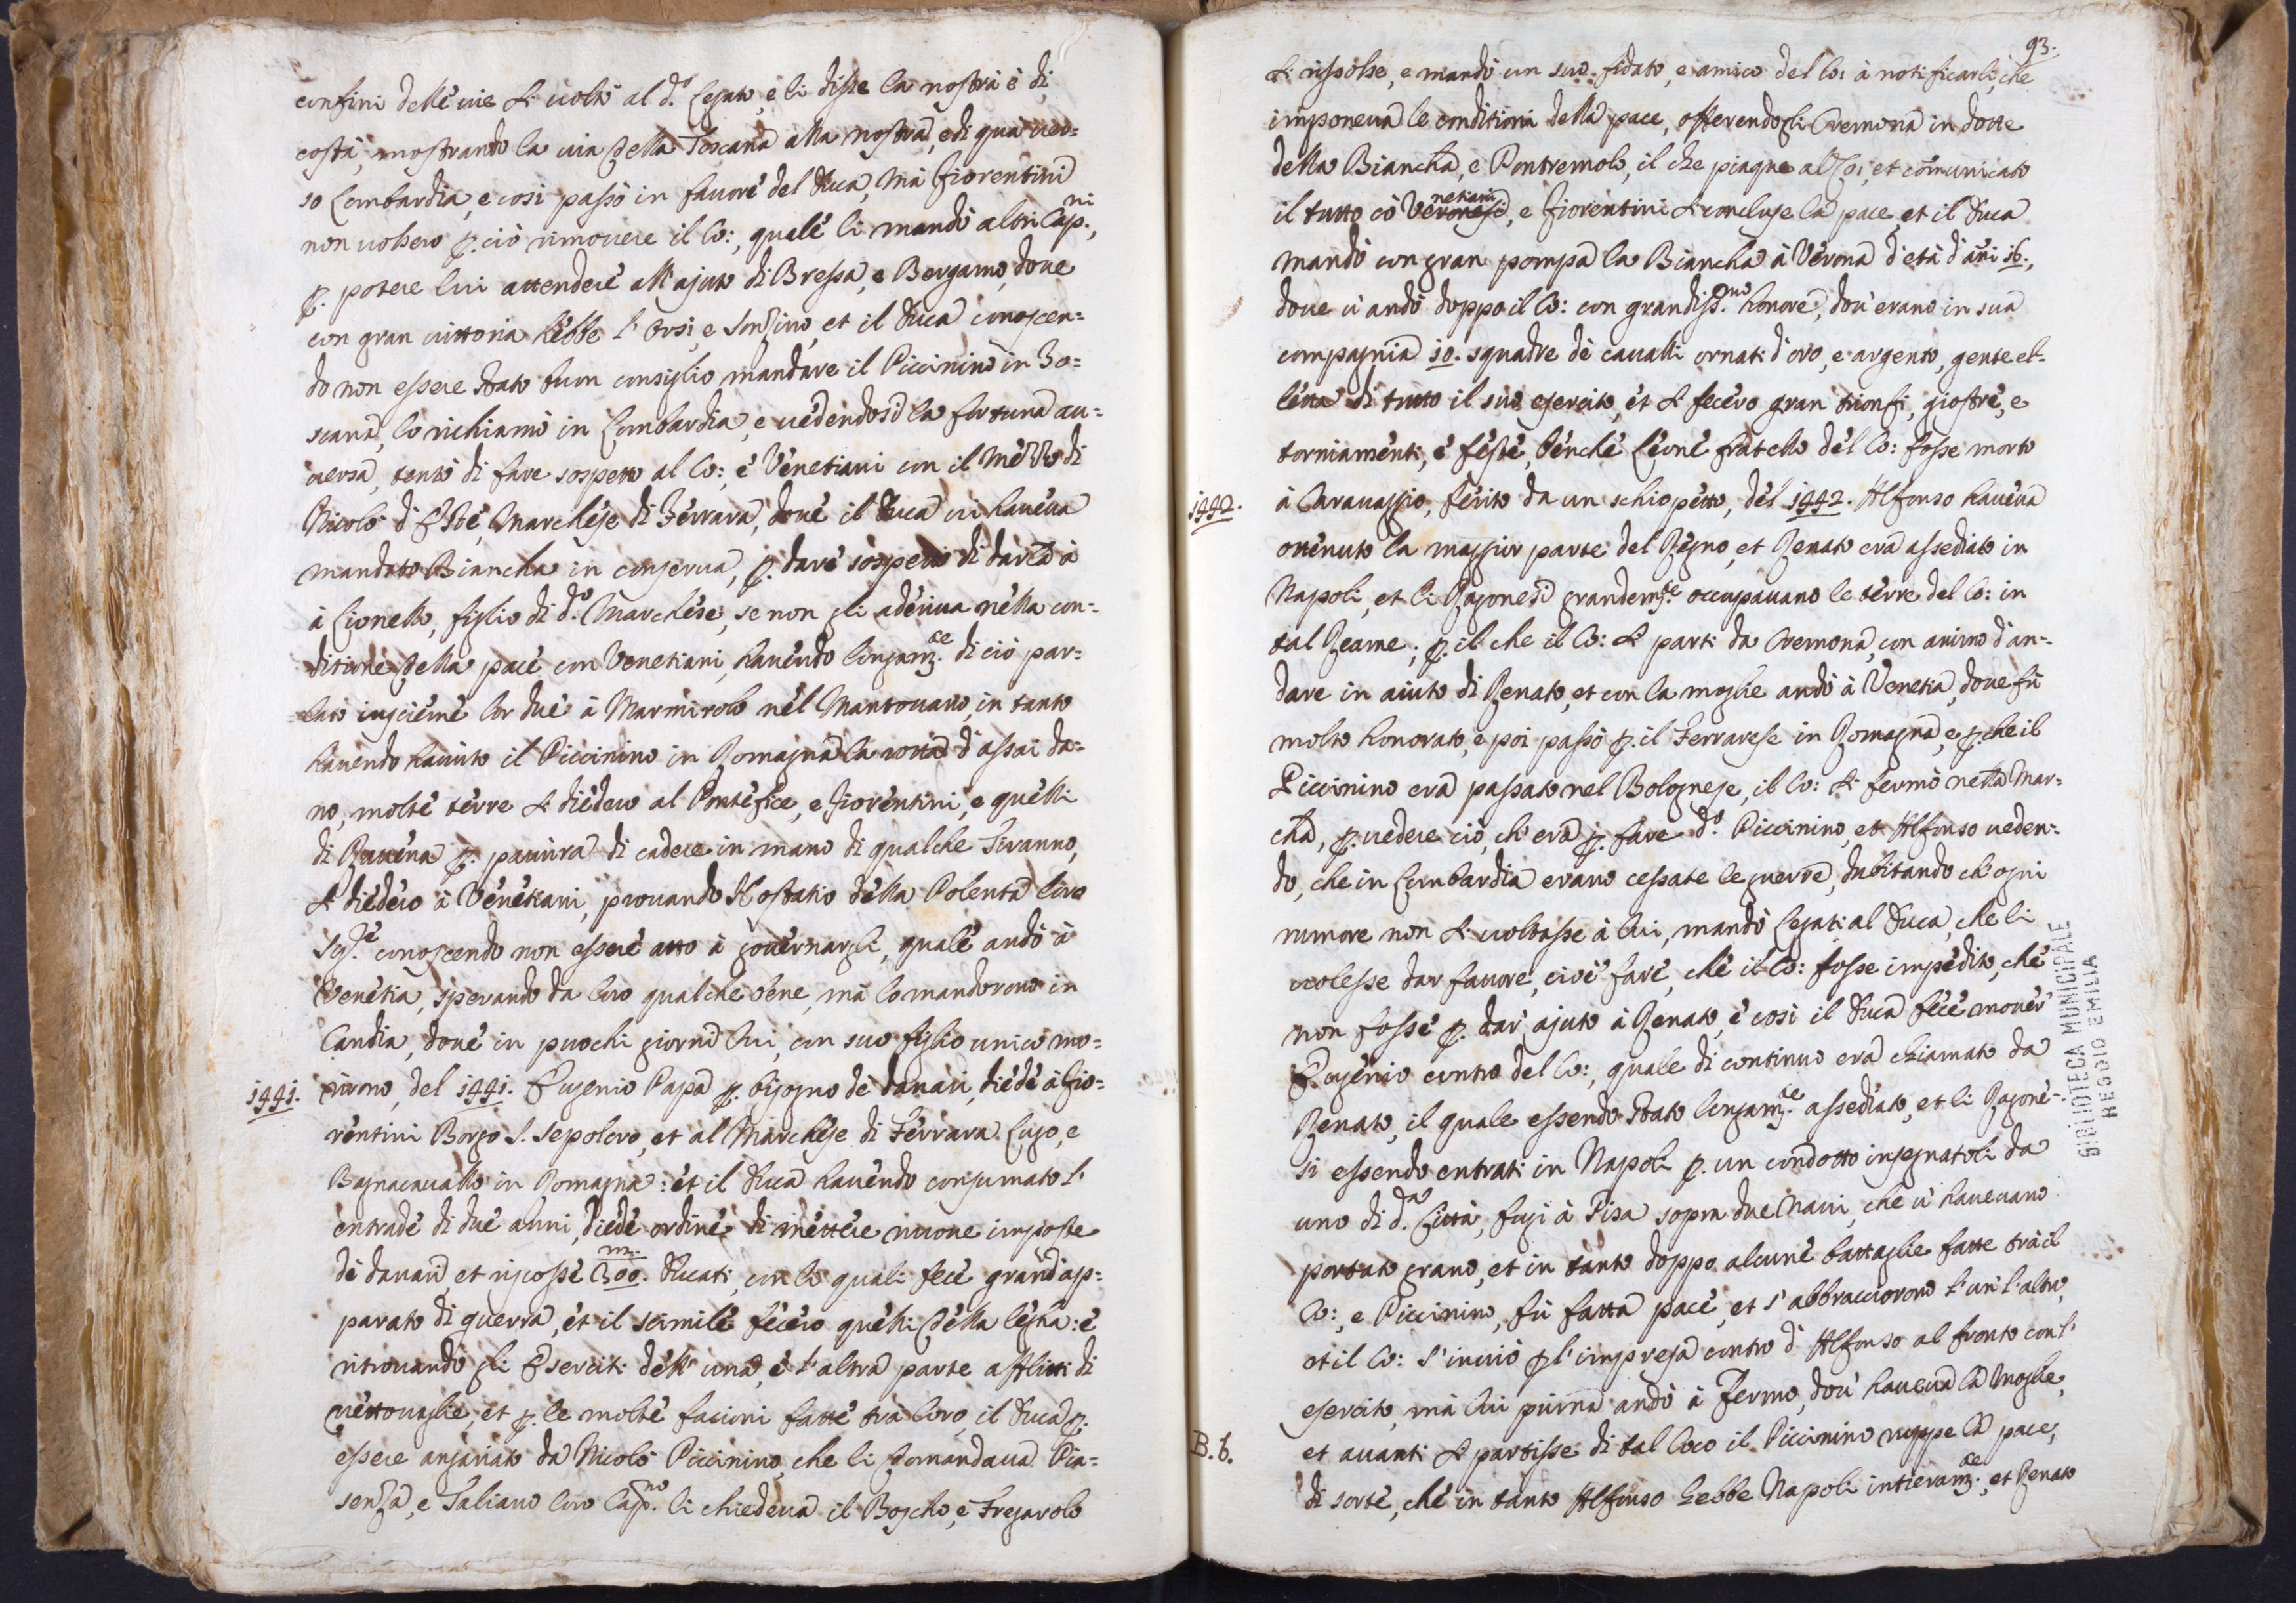 confini delle uie si uoltò al d.º Legato, e li disse la nostra è di
costà, mostrando la uia della Toscana alla nostra, e di quà uer=
so Lombardia, e così passò in fauore del Duca, mà Fiorentini
non uolsero p. ciò rimouere il Co:, quale li mandò altri Cap.ni,
p. potere lui attendere all'ajuto di Bressa, e Bergamo, doue
con gran uittoria hebbe l'Orsi, e Sonzino, et il Duca conoscen=
do non essere stato buon consiglio mandare il Piccinino in To=
scana, lo richiamò in Lombardia, e uedendosi la fortuna au=
uersa, tentò di fare sospetto al Co:, e Venetiani con il mezzo di
Nicolò d'Este, Marchese di Ferrara, doue il Duca ui haueua
mandato Biancha in conserua, p. dare sospetto di darla à
à Lionello, figlio di d.º Marchese, se non gli aderiua nella con=
ditione della pace con Venetiani, hauendo longam.te di ciò par=
lato insieme lor due à Marmirolo nel Mantouano, in tanto
hauendo hauuto il Piccinino in Romagna la rotta d'assai da=
no, molte terre si diedero al Pontefice, e Fiorentini, e quelli
di Rauena p. pauura di cadere in mano di qualche Tiranno,
si diedero à Venetiani, prouando Hostatio della Polenta loro
Sig.re conoscendo non essere atto à gouernargli, quale andò à
Venetia, sperando da loro qualche bene, mà lo mandorono in
Candia, doue in puochi giorni lui, con suo figlio unico mo=
1441. rirono, del 1441. Eugenio Papa p. bisogno de danari, diede à Fio=
rentini Borgo S. Sepolcro, et al Marchese di Ferrara Lugo, e
Bagnacauallo in Romagna: et il Duca hauendo consumato l'
entrade di due anni, diede ordine di mettere nuoue imposte
de danari, et riscosse 300.m. Ducati, con li quali fece grand'ap=
parato di guerra, et il simile fecero quelli della legha: e
ritrouando gli Eserciti dell'una, e l'altra parte afflitti di
uettouaglie, et p. le molte fationi fatte trà loro, il Duca p.
essere angariato da Nicolò Piccinino, che li domandaua Pia=
senza, e Taliano loro Cap.no li chiedeua il Boscho, e Fregarolo
93.
si rissolse, e mandò un suo fidato, e amico del Co: à notificarli, che
imponeua le conditioni della pace, offerendogli Cremona in dotte
della Biancha, e Pontremolo, il che piaque al Co:, et comunicato
il tutto cō Veronesi netiani, e Fiorentini si concluse la pace, et il Duca
mandò con gran pompa la Biancha à Verona d'età d'ani 16.,
doue u'andò doppo il Co: con grandiss.mo honore, dou'erano in sua
compagnia 10. squadre de caualli ornati d'oro, e argento, gente el=
letta di tutto il suo esercito, et si fecero gran trionfi, giostre, e
torniamenti, e feste, benche Leone fratello del Co: fosse morto
1442. à Carauaggio, ferito da un schiopetto, del 1442. Alfonso haueua
ottenuto la maggior parte del Regno, et Renato era assediato in
Napoli, et li Ragonesi grandem.te occupauano le terre del Co: in
tal Reame; p. il che il Co: si partì da Cremona, con animo d'an=
dare in aiuto di Renato, et con la moglie andò à Venetia, doue fù
molto honorato, e poi passò p. il Ferrarese in Romagna, e p. che il
Piccinino era passato nel Bolognese, il Co: si fermò nella Mar=
cha, p. uedere ciò, ch'era p. fare d.º Piccinino, et Alfonso ueden=
do, che in Lombardia erano cessate le guerre, dubitando ch'ogni
rumore non si uoltasse à lui, mandò Legati al Duca, che li
uolesse dar fauore, cioè fare, che il Co: fosse impedito, che
non fosse p. dar ajuto à Renato, e così il Duca fece mouer
Eugenio contro del Co:, quale di continuo era chiamato da
Renato, il quale essendo stato longam.te assediato, et li Ragone=
si essendo entrati in Napoli p. un condotto insegnatoli da
uno di d.ta Città, fugì à Pisa sopra due Naui, che u'haueuano
portato grano, et in tanto doppo alcune battaglie fatte trà il
Co:, e Piccinino, fù fatta pace, et s'abbracciorono l'un l'altro,
et il Co: s'inuiò p. l'impresa contro d'Alfonso al Tronto con l'
esercito, mà lui prima andò à Fermo, dou'haueua la Moglie,
B.6. et auanti si partisse di tal loco il Piccinino ruppe la pace,
di sorte, che in tanto Alfonso hebbe Napoli intieram.te, et Renato
BIBLIOTECA MUNICIPALE
REGGIO EMILIA